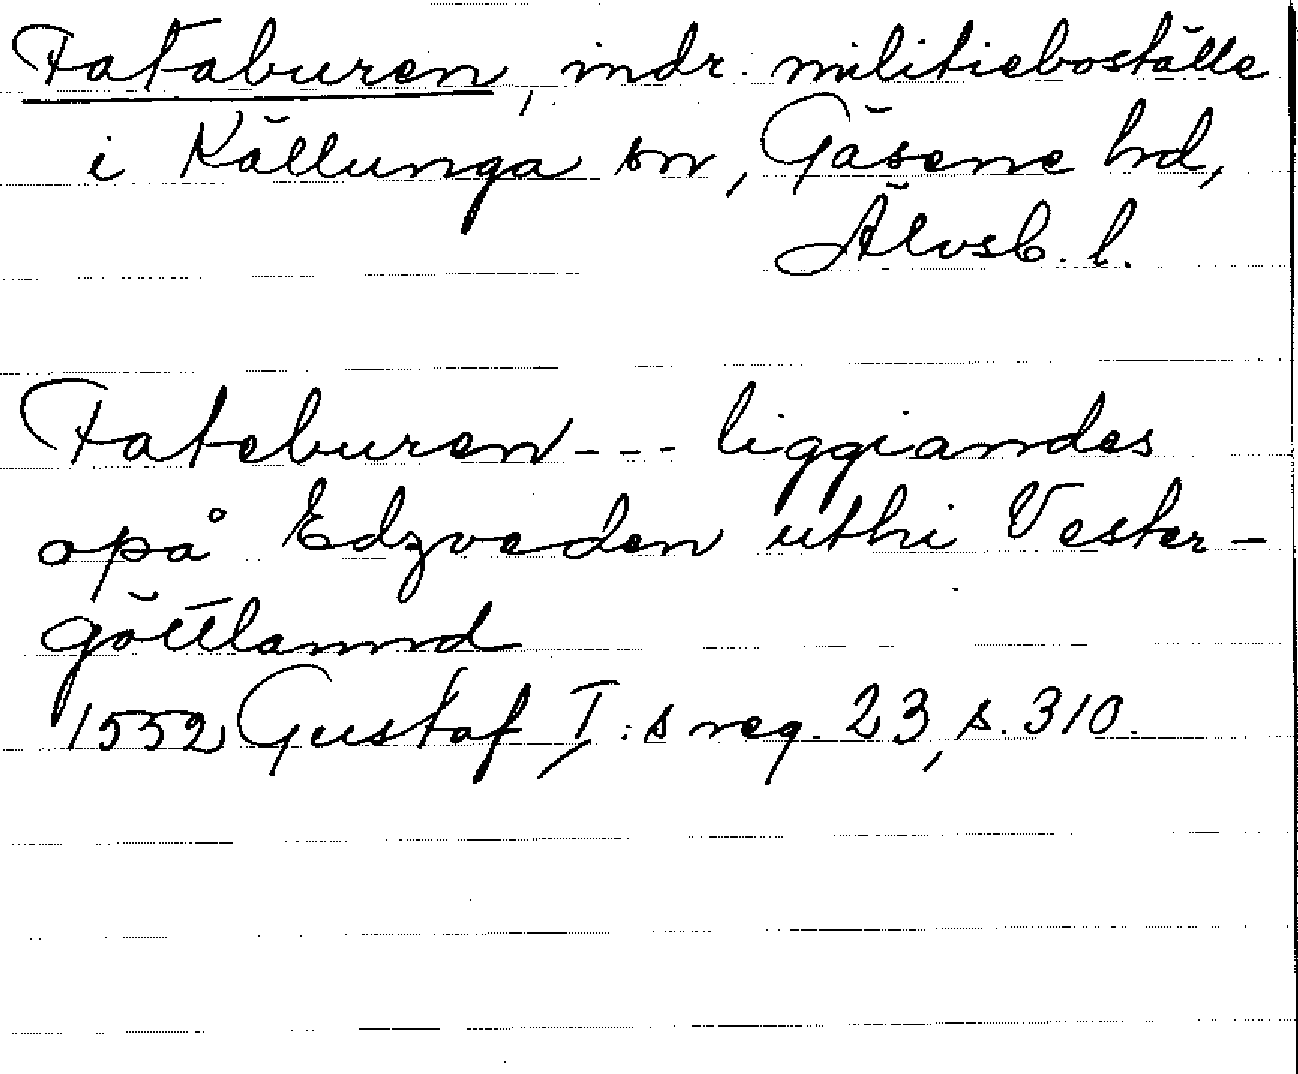 Fataburen, indr. militieboställe
i Källunga sn, Gäsene hd,
Älvsb. l.
Fateburen - - - liggiandes
opå Edzveden uthi Vester-
göttlannd
1552 Gustaf I:s reg. 23, s. 310.